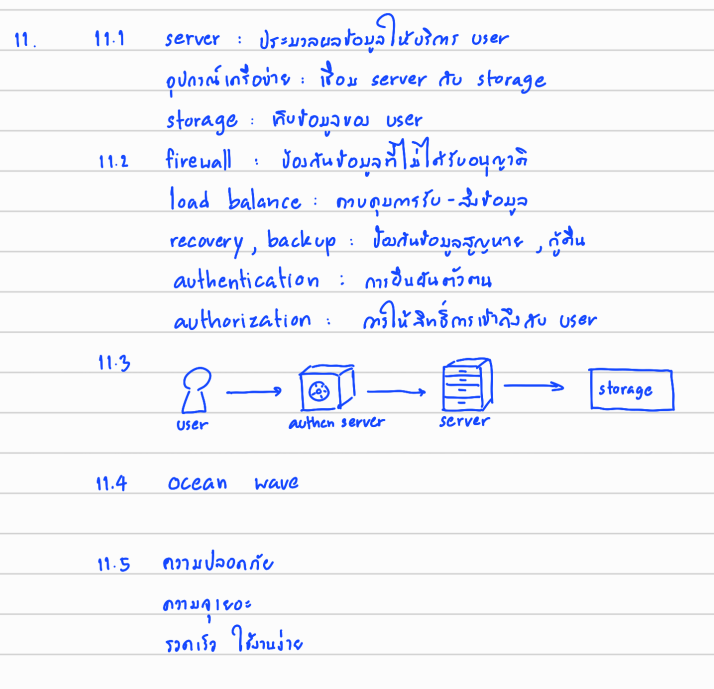 11. 11.1 server : ประมวลผลข้อมูลให้บริการ user
อุปกรณ์เครือข่าย : เชื่อม server กับ storage
storage : เก็บข้อมูลของ user
11.2 firewall : ป้องกันข้อมูลที่ไม่ได้รับอนุญาติ
load balance : ควบคุมการรับ - ส่งข้อมูล
recovery , backup : ป้องกันข้อมูลสูญหาย , กู้คืน
authentication : การยืนยันตัวตน
authorization : การให้สิทธิ์การเข้าถึงกับ user
11.3
storage
user authen server server
11.4 ocean wave
11.5 ความปลอดภัย
ความจุเยอะ
รวดเร็ว ใช้งานง่าย